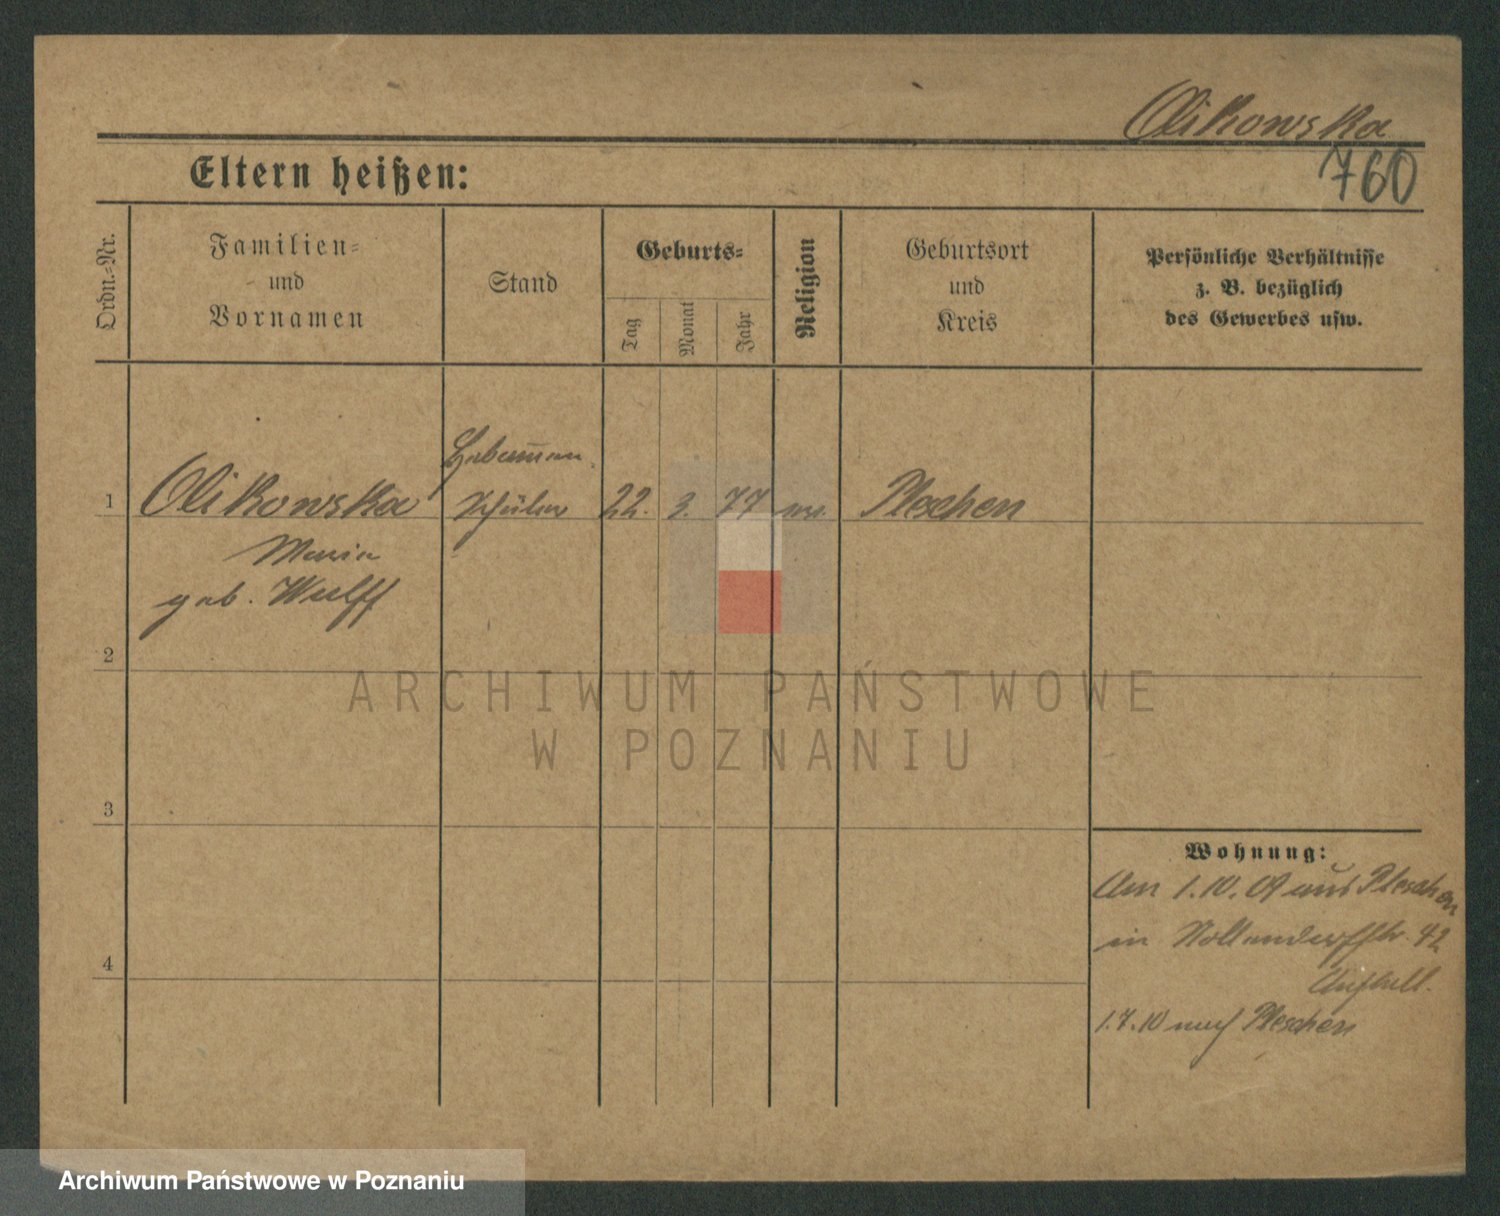 Olikowska
760
Eltern heißen:
Ordn.-Nr.
Familien-
und
Vornamen
Stand
Geburts-
Tag
Monat
Jahr
Religion
Geburtsort
und
Kreis
Persönliche Verhältnisse
z. B. bezüglich
des Gewerbes usw.
Hebammen
1 Olikowska Schülerin 22. 3. 77 Pleschen
Maria
geb. Wulff
2
ARCHIWUM PAŃSTWOWE
W POZNANIU
3
Wohnung:
Am 1.10.09 aus Pleschen
in Nollendorffstr. 42
4
1.7.10 nach Pleschen
Archiwum Państwowe w Poznaniu